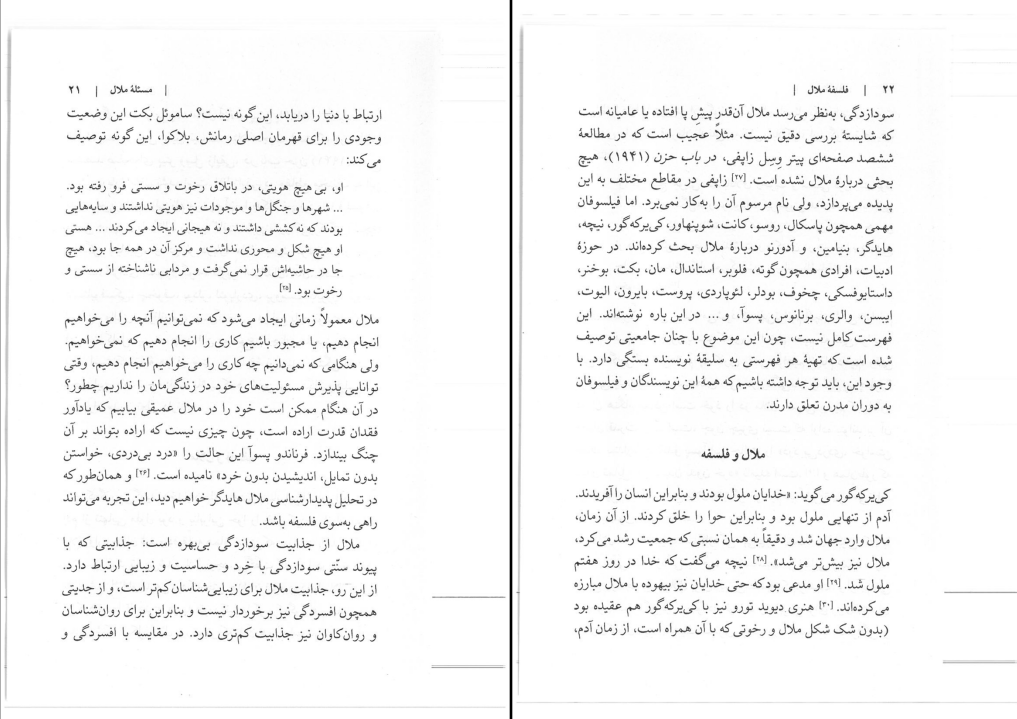 | مسئلهٔ ملال | ۲۱
ارتباط با دنیا را دریابد، این‌گونه نیست؟ ساموئل بکت این وضعیت
وجودی را برای قهرمان اصلی رمانش، بلاکوا، این گونه توصیف
می‌کند:
او، بی‌هیچ هویتی، در باتلاق رخوت و سستی فرو رفته بود.
... شهرها و جنگل‌ها و موجودات نیز هویتی نداشتند و سایه‌هایی
بودند که نه کششی داشتند و نه هیجانی ایجاد می‌کردند ... هستی
او هیچ شکل و محوری نداشت و مرکز آن در همه جا بود، هیچ
جا در حاشیه‌اش قرار نمی‌گرفت و مردابی ناشناخته از سستی و
رخوت بود. [۲۵]
ملال معمولاً زمانی ایجاد می‌شود که نمی‌توانیم آنچه را می‌خواهیم
انجام دهیم، یا مجبور باشیم کاری را انجام دهیم که نمی‌خواهیم.
ولی هنگامی که نمی‌دانیم چه کاری را می‌خواهیم انجام دهیم، وقتی
توانایی پذیرش مسئولیت‌های خود در زندگی‌مان را نداریم چطور؟
در آن هنگام ممکن است خود را در ملال عمیقی بیابیم که یادآور
فقدان قدرت اراده است، چون چیزی نیست که اراده بتواند بر آن
چنگ بیندازد. فرناندو پسوآ این حالت را «درد بی‌دردی، خواستن
بدون تمایل، اندیشیدن بدون خرد» نامیده است. [۲۶] و همان‌طور که
در تحلیل پدیدارشناسی ملال هایدگر خواهیم دید، این تجربه می‌تواند
راهی به‌سوی فلسفه باشد.
ملال از جذابیت سودازدگی بی‌بهره است: جذابیتی که با
پیوند سنّتی سودازدگی با خِرد و حساسیت و زیبایی ارتباط دارد.
از این رو، جذابیت ملال برای زیبایی‌شناسان کم‌تر است، و از جدیتی
همچون افسردگی نیز برخوردار نیست و بنابراین برای روان‌شناسان
و روان‌کاوان نیز جذابیت کم‌تری دارد. در مقایسه با افسردگی و
۲۲ | فلسفهٔ ملال |
سودازدگی، به‌نظر می‌رسد ملال آن‌قدر پیشِ پا افتاده یا عامیانه است
که شایستهٔ بررسی دقیق نیست. مثلاً عجیب است که در مطالعهٔ
ششصد صفحه‌ای پیتر وسِل زاپفی، در باب حزن (۱۹۴۱)، هیچ
بحثی دربارهٔ ملال نشده است. [۲۷] زاپفی در مقاطع مختلف به این
پدیده می‌پردازد، ولی نام مرسوم آن را به‌کار نمی‌برد. اما فیلسوفان
مهمی همچون پاسکال، روسو، کانت، شوپنهاور، کی‌یرکه‌گور، نیچه،
هایدگر، بنیامین، و آدورنو دربارهٔ ملال بحث کرده‌اند. در حوزهٔ
ادبیات، افرادی همچون گوته، فلوبر، استاندال، مان، بکت، بوخنر،
داستایوفسکی، چخوف، بودلر، لئوپاردی، پروست، بایرون، الیوت،
ایبسن، والری، برنانوس، پسوآ، و ... در این باره نوشته‌اند. این
فهرست کامل نیست، چون این موضوع با چنان جامعیتی توصیف
شده است که تهیهٔ هر فهرستی به سلیقهٔ نویسنده بستگی دارد. با
وجود این، باید توجه داشته باشیم که همهٔ این نویسندگان و فیلسوفان
به دوران مدرن تعلق دارند.
ملال و فلسفه
کی‌یرکه‌گور می‌گوید: «خدایان ملول بودند و بنابراین انسان را آفریدند.
آدم از تنهایی ملول بود و بنابراین حوا را خلق کردند. از آن زمان،
ملال وارد جهان شد و دقیقاً به همان نسبتی که جمعیت رشد می‌کرد،
ملال نیز بیش‌تر می‌شد». [۲۸] نیچه می‌گفت که خدا در روز هفتم
ملول شد. [۲۹] او مدعی بود که حتی خدایان نیز بیهوده با ملال مبارزه
می‌کرده‌اند. [۳۰] هنری دیوید تورو نیز با کی‌یرکه‌گور هم عقیده بود
(بدون شک شکل ملال و رخوتی که با آن همراه است، از زمان آدم،